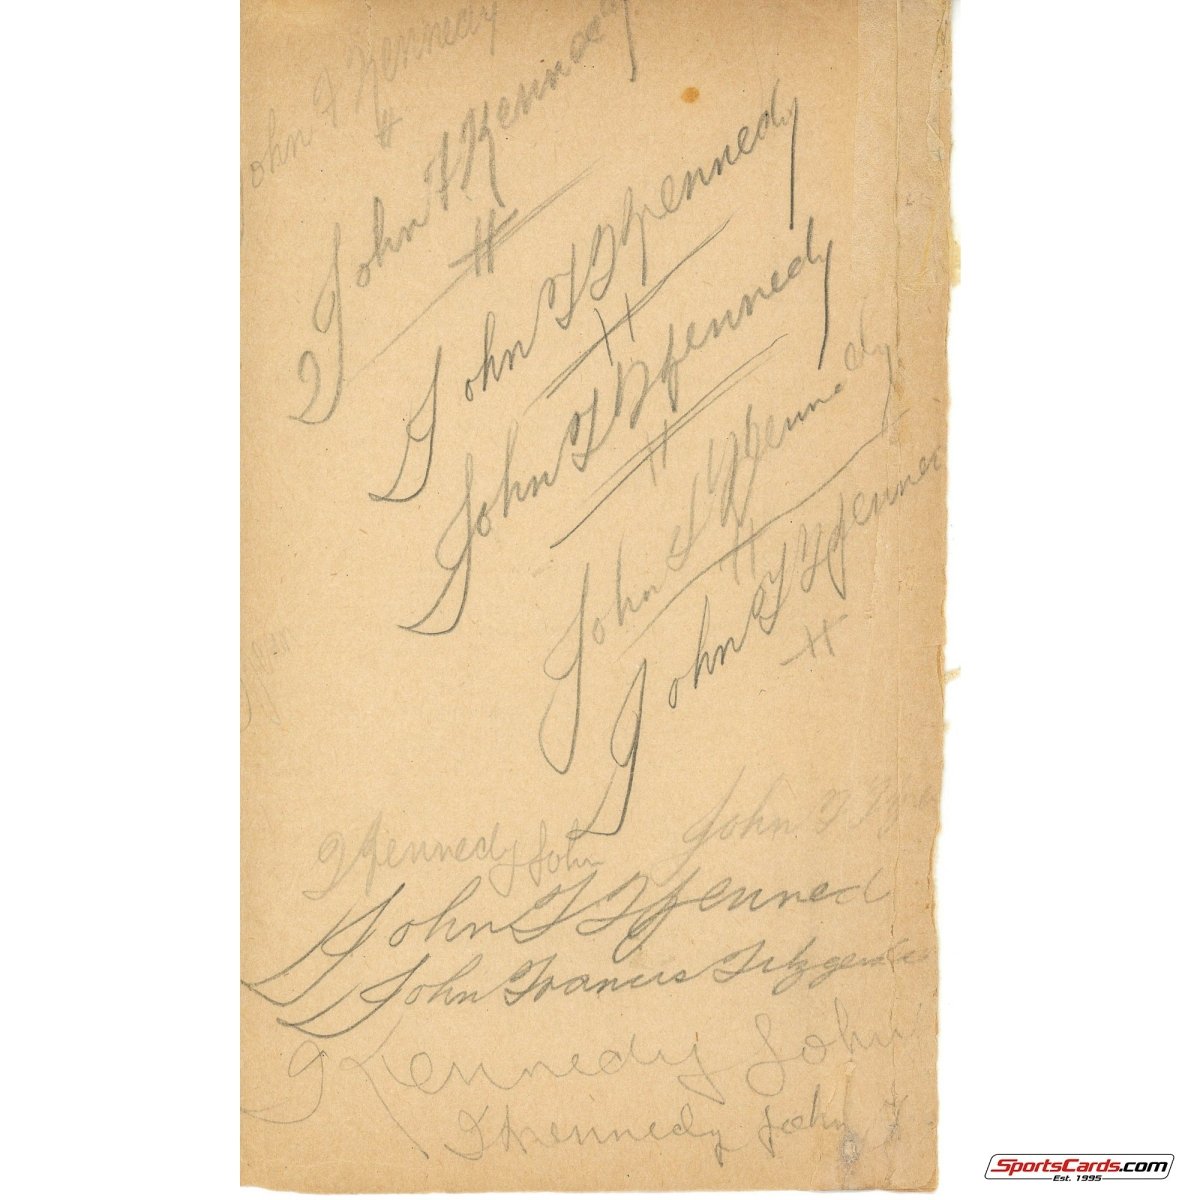 John F Kennedy
John F Kennedy
John F Kennedy
John F Kennedy
John F Kennedy
John F Kennedy
Kennedy John John F
John F Kenned
John Francis Fitzgerald
Kennedy John
Kennedy John F
SportsCards.com
Est. 1995